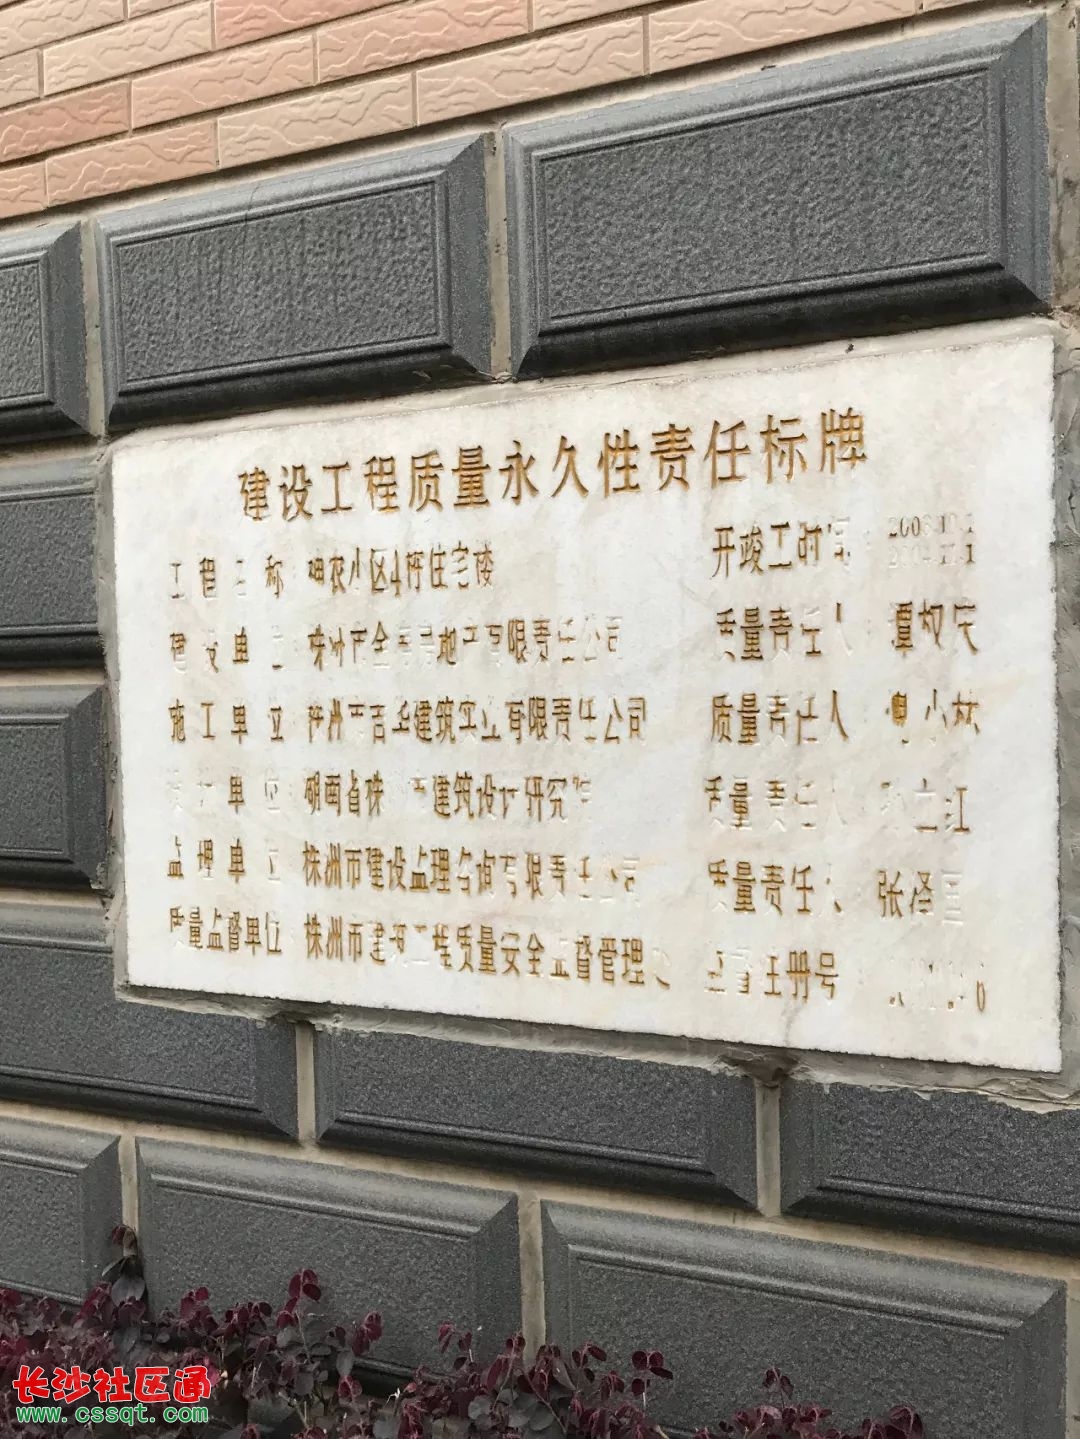 建设工程质量永久性责任标牌
工程名称 小区4栋住宅楼 开竣工时
建设单位 株洲市 地产有限责任公司 质量责任人 谭
施工单位 株洲市吉华建筑实业有限责任公司 质量责任人 小林
单位 湖南省株 建筑设计研究院 质量责任人 江
监理单位 株洲市建设监理咨询有限责任公司 质量责任人 张泽
质量监督单位 株洲市建设工程质量安全监督管理处 监督注册号
长沙社区通
www.cssqt.com